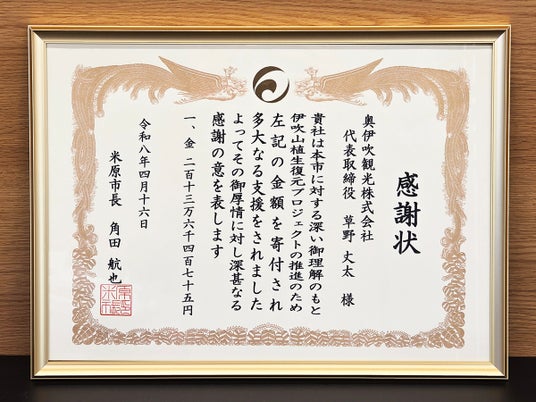 感謝状
奥伊吹観光株式会社
代表取締役 草野 丈太 様
貴社は本市に対する深い御理解のもと
伊吹山植生復元プロジェクトの推進のため
左記の金額を寄付され
多大なる支援をされました
よってその御厚情に対し深甚なる
感謝の意を表します
一、金 二百十三万六千四百七十五円
令和八年四月十六日
米原市長 角田 航也